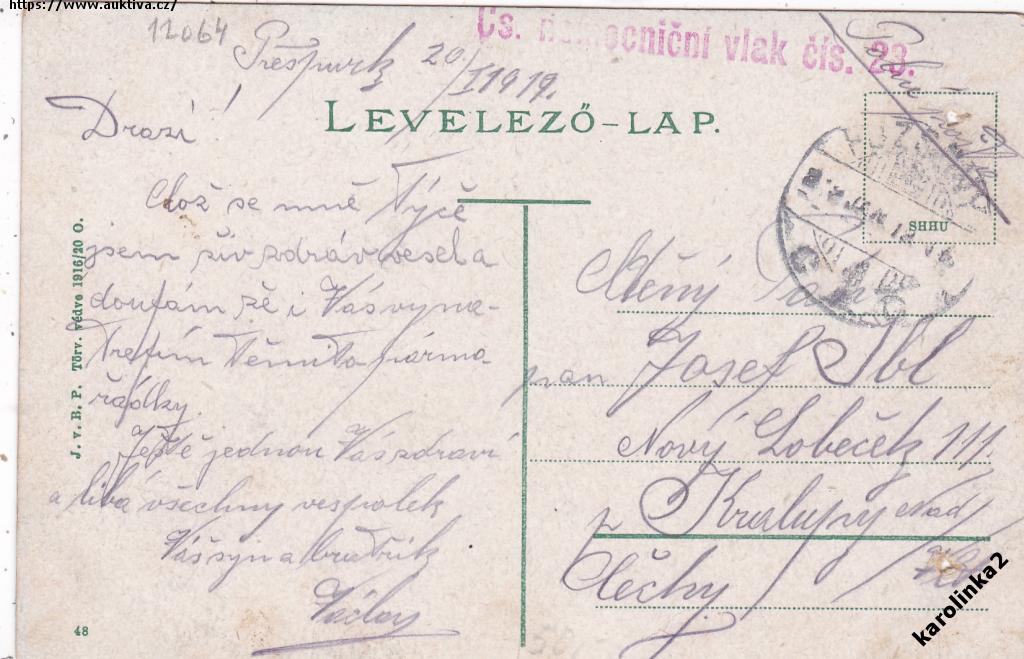 https://www.auktiva.cz/
12064
Čs. nemocniční vlak čís. 23.
Prešpurk 20/I 1919.
Drazí!
LEVELEZŐ-LAP.
SHHU
Což se mně Týče
jsem živ zdráv vesel a
doufám že i Vás vyna-
trefím těmito pármа
řádky.
Ještě jednou Vás zdraví
a líbá všechny vespolek
Váš syn a bratřík
Václav
J. v. B. P. Törv. védve 1916/20 O.
48
Ctěný Pan
pan Josef Ibl
Nový Lobeček 111.
p Kralupy nad
Čechy
karolinka2